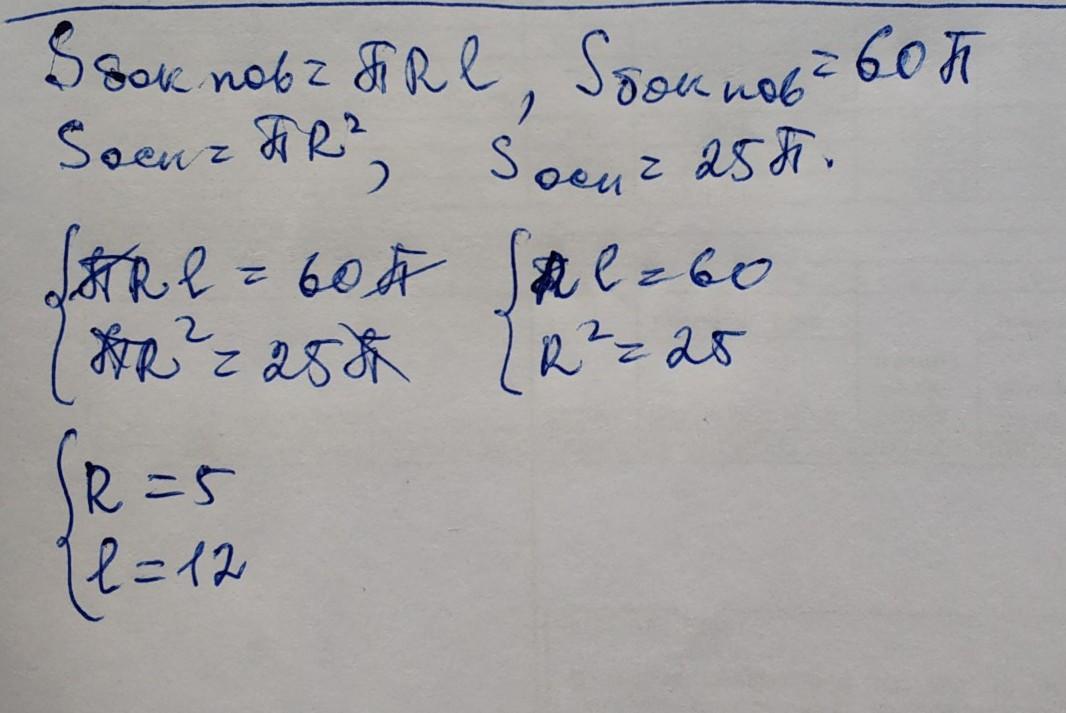 Sбок пов = πRl, Sбок пов = 60π
Sосн = πR², Sосн = 25π.
{πRl = 60π {Rl = 60
πR² = 25π R² = 25
{R = 5
l = 12